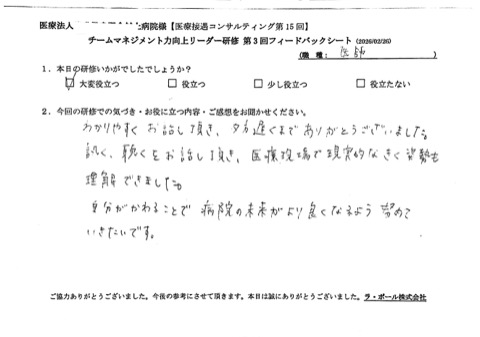 医療法人 病院様【医療接遇コンサルティング第15回】
チームマネジメント力向上リーダー研修 第3回フィードバックシート (2026/02/26)
(職種: 医師 )
1.本日の研修いかがでしたでしょうか?
☑ 大変役立つ □ 役立つ □ 少し役立つ □ 役立たない
2.今回の研修での気づき・お役に立つ内容・ご感想をお聞かせください。
わかりやすく お話し頂き、夕方遅くまで ありがとうございました。
訊く、聴くを お話し頂き、医療現場で現実的なきく姿勢も
理解できました。
自分がかわることで 病院の未来がより良くなるよう 努めて
いきたいです。
ご協力ありがとうございました。今後の参考にさせて頂きます。本日は誠にありがとうございました。ラ・ポール株式会社